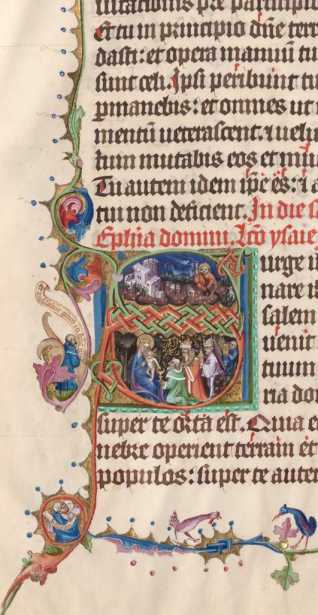 ultationis pre participi
Et tu in principio dn̄e terr
dasti: et opera manuū tu
sunt celi. Ipsi peribunt tu
ꝑmanebis: et omnes ut
mentū ueterascent. ⁊ uelu
tum mutabis eos et mu
Tu autem idem ip̄e es: ⁊ a
tui non deficient. In die s
Ephīa domini. Lc̄o ysaie
urge i
nare ie
salem
uenit
tuum
ria do
super te orta est. Quia e
nebre operient terram et
populos: super te autem